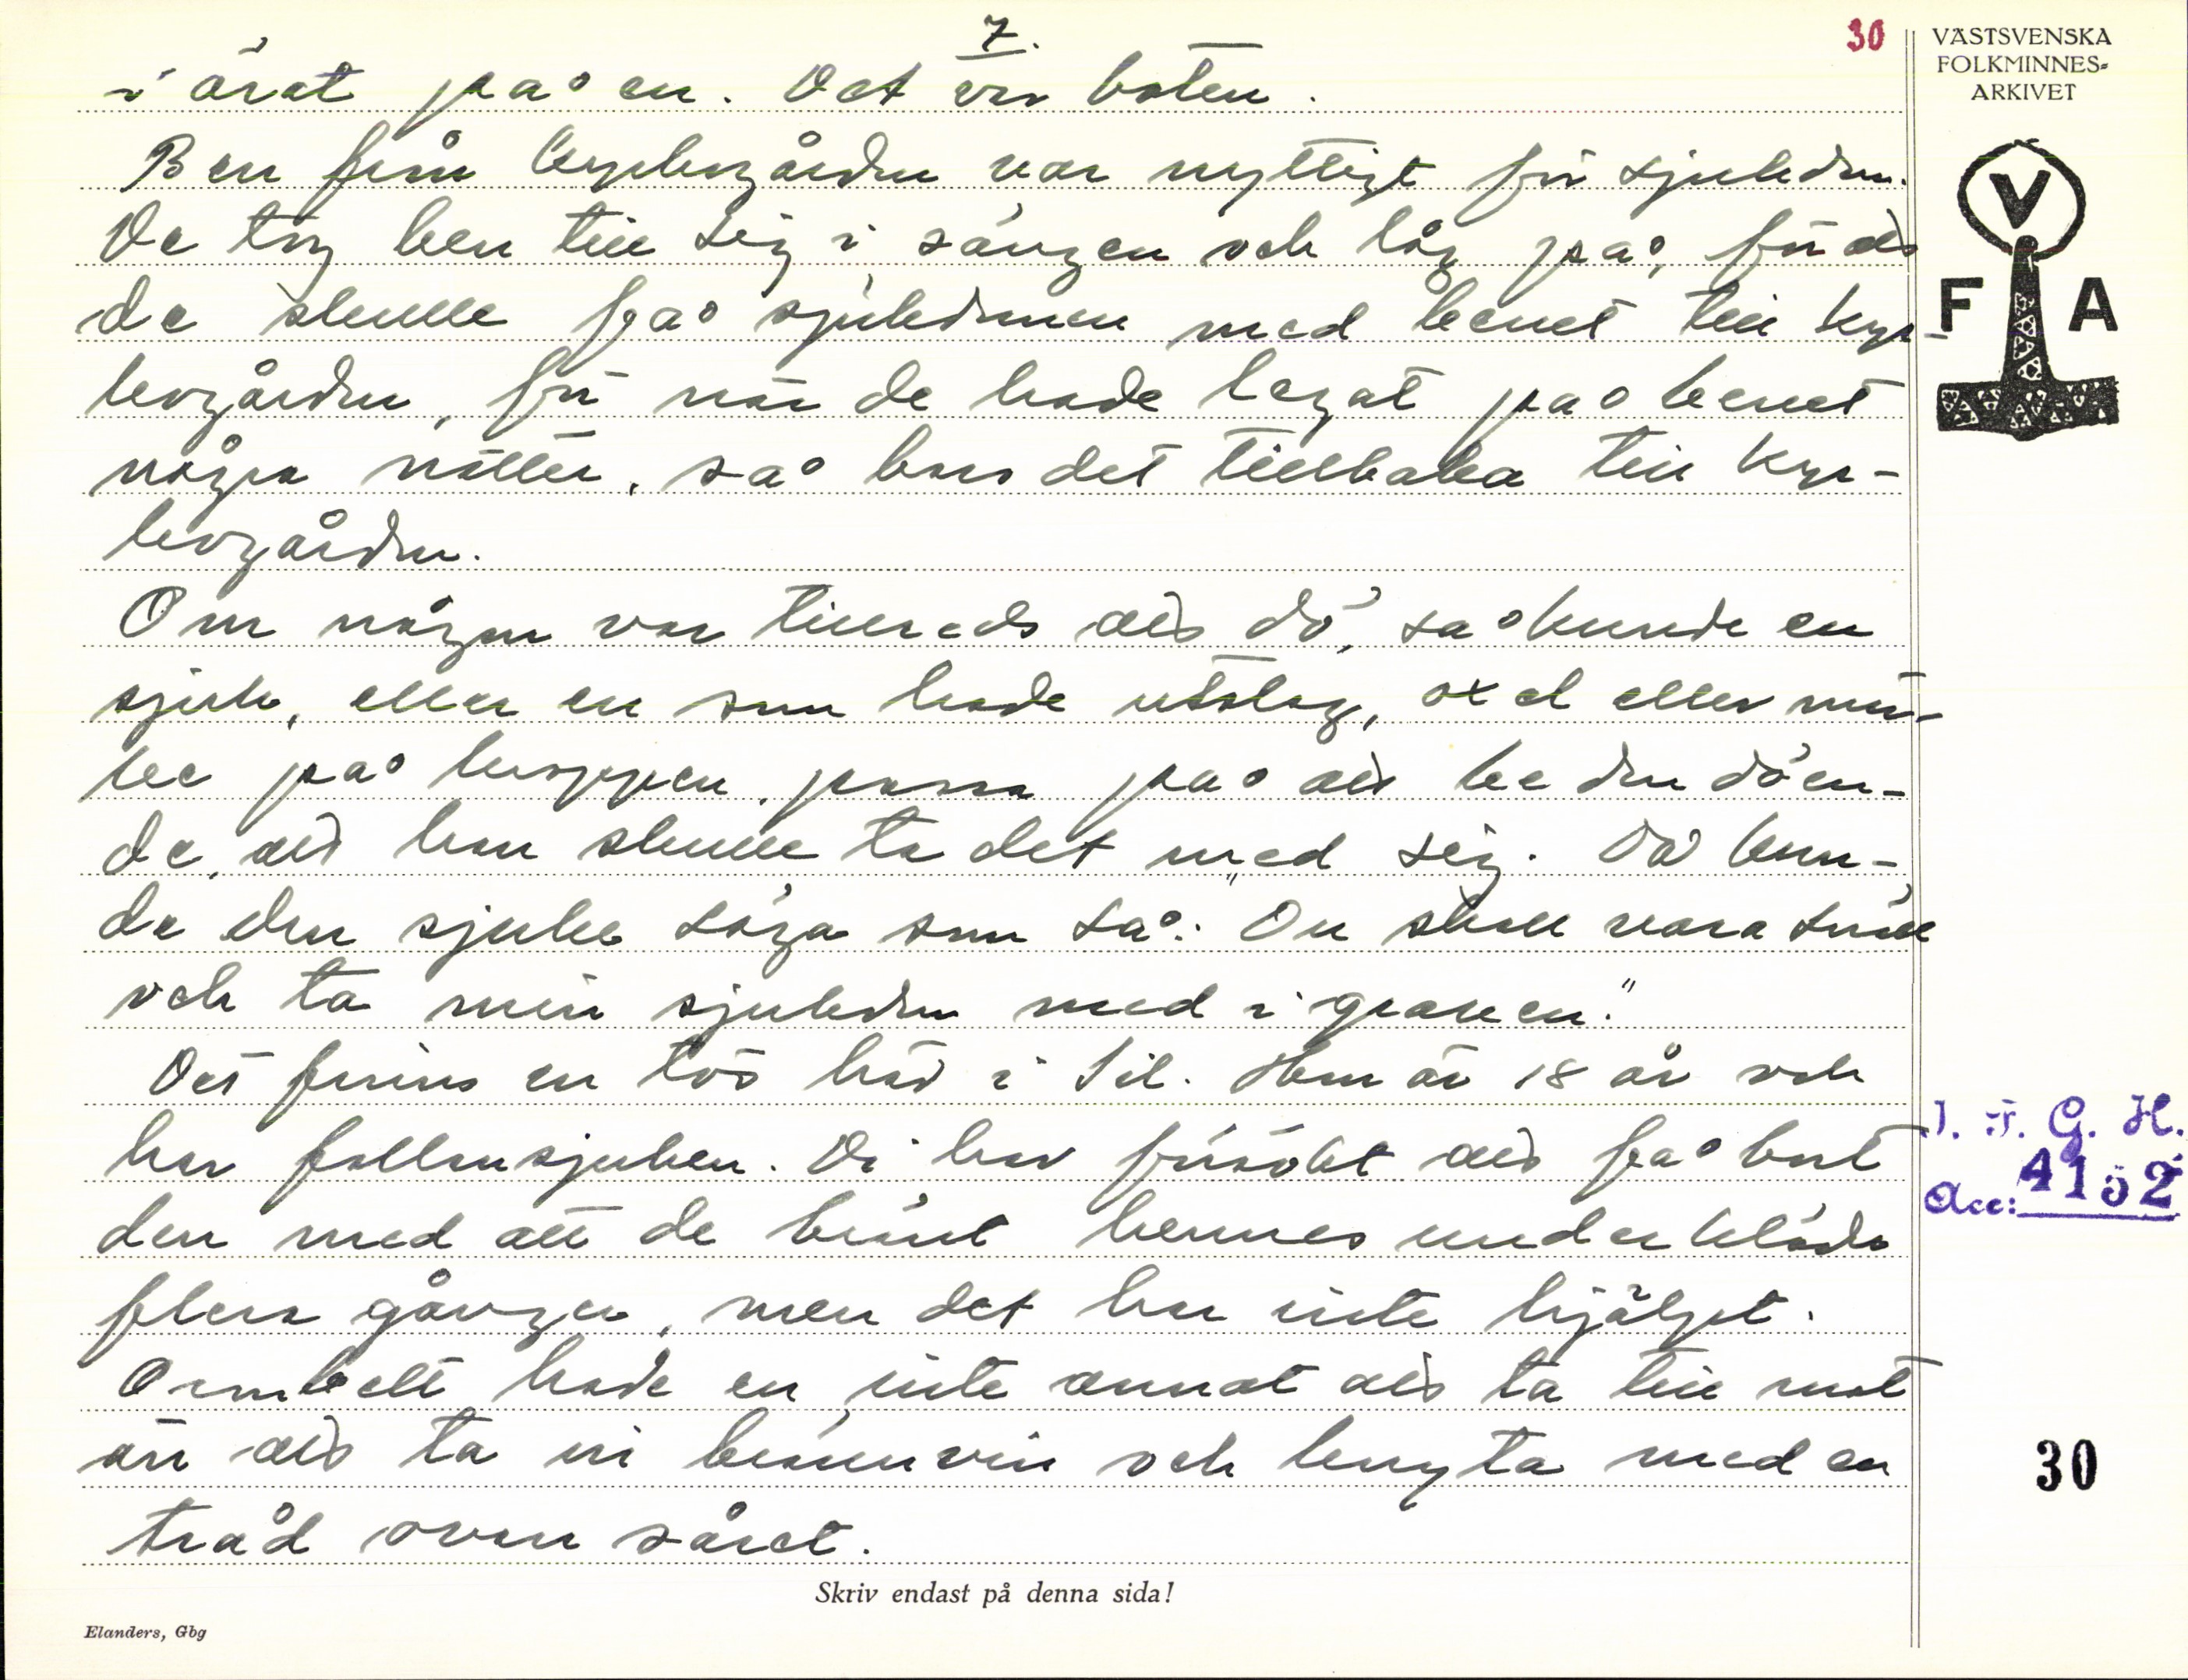 7.
30
VÄSTSVENSKA
FOLKMINNES-
ARKIVET
i örat på en. Det är boten.
Ben från kyrkogården var nyttigt för sjukdom.
De tog ben till sig i sängen och låg på, för als
de skulle få sjukdomen med benet till kyr-
kogården, för när de hade legat på benet
några nätter, så bars det tillbaka till kyr-
kogården.
V
F A
Om någon var tillreds als dö, så kunde en
sjuk, eller en som hade utslag, oxel eller mär-
ke på kroppen, passa på als be den döen-
de, als han skulle ta det med sig. Då kun-
de den sjuke säga som så: "Du skall vara snäll
och ta min sjukdom med i graven."
Det finns en tös här i Sil. Hon är 18 år och
har fallansjukan. Di har försökt als få bort
den med att de bränt hennes underkläder
flera gånger, men det har inte hjälpt.
Ormbett hade en inte annat als ta till mot
än als ta in brännvin och knyta med en
tråd ovan såret.
I. F. G. H.
Acc: 4152
30
Skriv endast på denna sida!
Elanders, Gbg